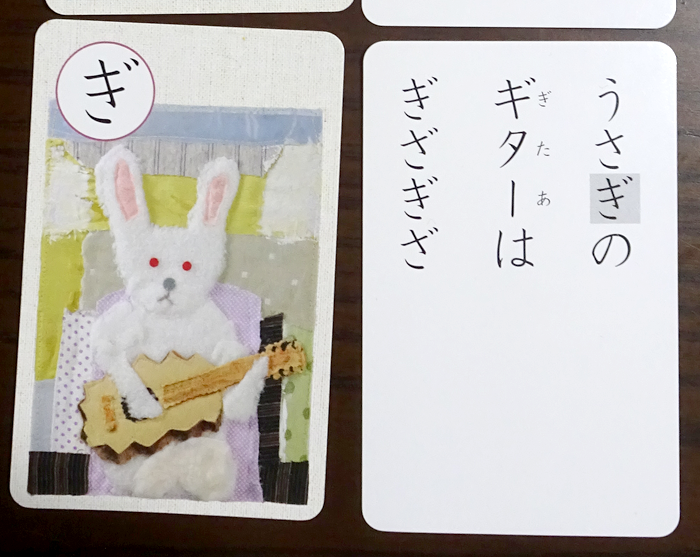 ぎ
うさぎの
ギターは
ぎたあ
ぎざぎざ